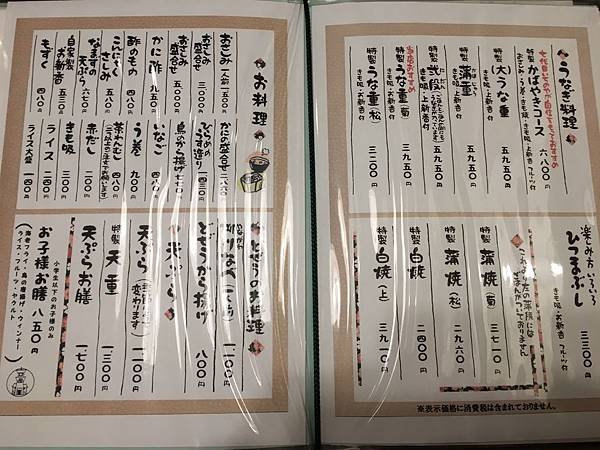 うなぎ料理
七代目いせやが自信をもっておすすめ
特製 かばやきコース 六八〇〇円
特製 (大)うな重 五九五〇円
きも吸・上新香付
特製 蒲重 五九五〇円
きも吸・上新香付
特製 弐段 五九五〇円
当店おすすめ
特製 うな重(菊) 三九五〇円
きも吸・上新香付
特製 うな重(松) 三二〇〇円
きも吸・お新香付
楽しみ方いろいろ
ひつまぶし 三三〇〇円
きも吸・お新香 フルーツ付
特製 蒲焼(菊) 三七一〇円
特製 蒲焼(松) 二九六〇円
特製 白焼 二四〇〇円
特製 白焼(上) 三九一〇円
※表示価格に消費税は含まれておりません。
お料理
おさしみ 一人前 一五〇〇円
おさしみ盛合せ 三〇〇〇円
おさしみ盛合せ 五〇〇〇円
かに酢 九五〇円
酢のもの 四八〇円
こんにゃくさしみ 四八〇円
なまずの天ぷら 六七〇円
自家製お新香 五三〇円
もずく 四八〇円
かにの盛合せ 二八六〇円
鳥から揚げ 七七〇円
いなご 四八〇円
う巻 九〇〇円
茶わんむし 四八〇円
赤だし 二〇〇円
きも吸 一〇〇円
ライス 二四〇円
ライス大盛
どぜうのお料理
どぢうから揚げ 八〇〇円
天ぷら
天ぷら 一一〇〇円
特製 天重 一三〇〇円
天ぷらお膳 一七〇〇円
小学生以下のお子様のみ
お子様お膳 八五〇円
(海老フライ・鳥の唐揚げ・ウィンナー
ライス・フルーツ・ヤクルト)